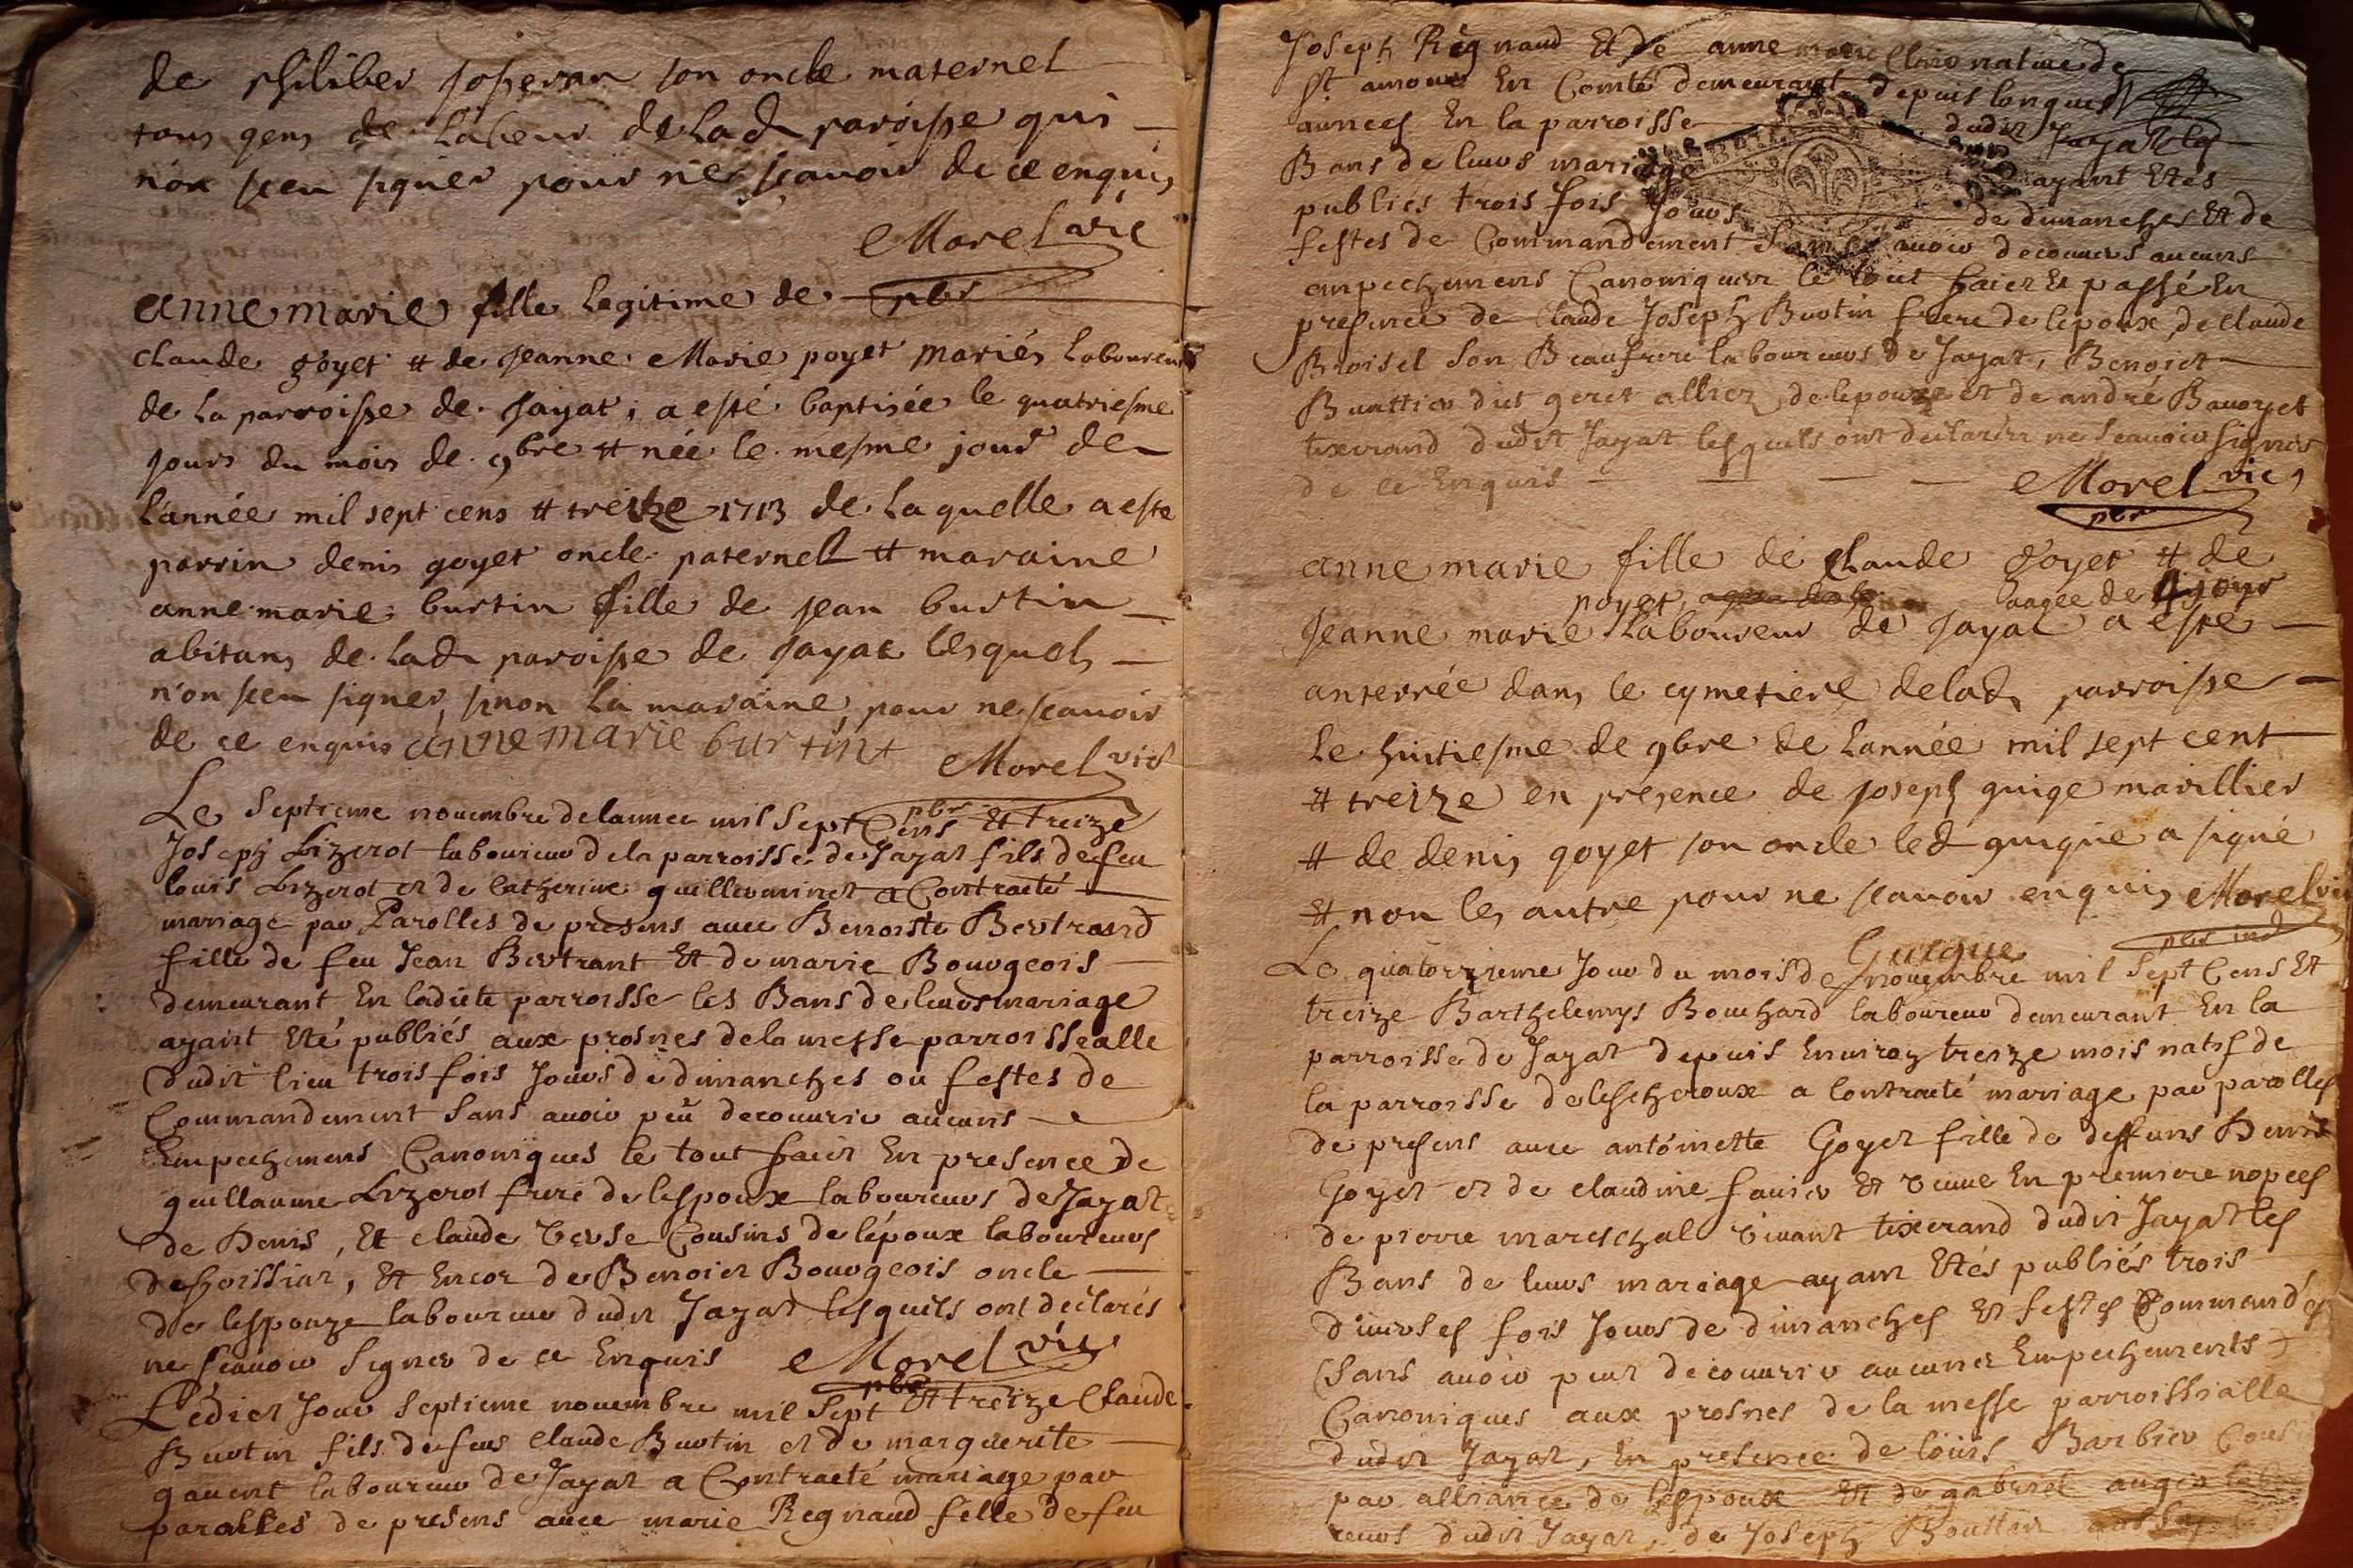 de philiber josseran son oncle maternel
tous gens de labeur de lad paroisse qui
n'on sceu signer pour ne scavoir de ce enquis
Morel vic
pbr
anne marie fille legitime de
claude goyet et de jeanne Marie poyet mariés laboureurs
de la parroisse de jayat, a esté baptisée le quatriesme
jours du mois de 9bre et née le mesme jour de
l'année mil sept cens et treize 1713 de laquelle a este
parrin denis goyet oncle paternel et maraine
anne marie burtin fille de jean burtin
abitans de lad paroisse de jayat lesquels
n'on sceu signer, sinon la maraine, pour ne scavoir
de ce enquis anne marie burtint
Morel vic
pbr
Le Septieme novembre de lannee mil Sept Cens Et treize
Joseph Lizerot laboureur de la parroisse de Jayat fils de feu
louis Lizerot et de Catherine guilleminet a Contracté
mariage par Parolles de presens avec Benoiste Bertrand
fille de feu Jean Bertrant Et de marie Bourgeois
demeurant En ladite parroisse les Bans de leurs mariage
ayant Eté publiés aux prosnes de la messe parroissealle
dudit lieu trois fois Jours de dimanches ou festes de
Commandement Sans avoir peu decouvrir aucuns
Empechemens Canoniques le tout faict En presence de
guillaume Lizerot frere de lespoux laboureurs de Jayat
de Denis, Et claude Verse Cousins de lépoux laboureurs
de foissiat, Et Encor de Benoiet Bourgeois oncle
de lespouze laboureur dudit Jayat lesquels ont declarés
ne scavoir Signer de ce Enquis Morel vic
pbr
Ledict Jour Septieme novembre mil Sept Et treize Claude
Burtin fils de feu Claude Burtin et de marguerite
gavent laboureur de Jayat a Contracté mariage par
parolles de presens avec marie Regnaud fille de feu
Joseph Regnaud Et de anne marie native de
st amour En Comté demeurant depuis longues
annees En la parroisse dudit Jayat les
Bans de leurs mariage ayant Etés
publiés trois fois Jours de dimanches Et de
festes de Commandement Sans avoir decouvers aucuns
empechemens Canoniques le tout faict Et passé En
presence de Claude Joseph Burtin frere de lepoux, de Claude
Broisel Son Beaufrere laboureurs de Jayat, Benoiet
dit geret alliez de lepouze et de andré
texerand dudit Jayat lesquels ont declarer ne Scavoir Signer
de ce Enquis Morel vic
pbr
anne marie fille de claude goyet et de
poyet aagée de 4 jour
jeanne marie laboureur de jayat a esté
anterrée dans le cymetiere de lad parroisse
le huitiesme de 9bre de l'année mil sept cent
et treize en presence de joseph guige marillier
et de denis goyet son oncle led guigue a signé
et non les autre pour ne scavoir enquis Morel vic
Guigue
Le quatorzieme Jour du mois de novembre mil Sept Cens Et
treize Barthelemys Bouchard laboureur demeurant En la
parroisse de Jayat depuis Environ treize mois natif de
la parroisse de lescheroux a Contracté mariage par parolles
de presens avec antoinette Goyet fille de deffuns Denis
Goyet et de claudine favier Et veuve En premiere nopces
de pierre mareschal vivant tixerand dudit Jayat les
Bans de leurs mariage ayant Etés publiés trois
diverses fois Jours de dimanches Et festes Commandés
Sans avoir peut decouvrir aucunes Empechements
Canoniques aux prosnes de la messe parroissialle
dudit Jayat, En presence de louis Barbier
par alliance de lespoux Et de gabriel
reurs dudit Jayat, de Joseph